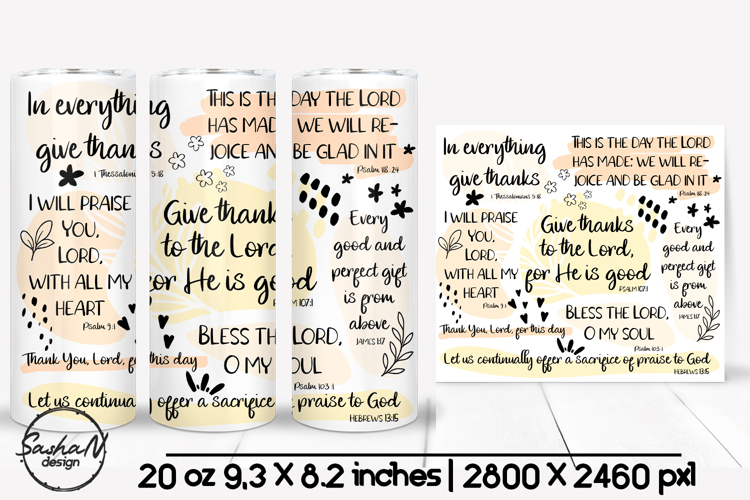 In everything
give thanks
1 Thessalonians 5:18
THIS IS THE DAY THE LORD
HAS MADE; WE WILL RE-
JOICE AND BE GLAD IN IT
Psalm 118:24
I WILL PRAISE
YOU,
LORD,
WITH ALL MY
HEART
Psalm 9:1
Give thanks
to the Lord,
for He is good
PSALM 107:1
Every
good and
perfect gift
is from
above
JAMES 1:17
Thank You, Lord, for this day
BLESS THE LORD,
O MY SOUL
Psalm 103:1
Let us continually offer a sacrifice of praise to God
HEBREWS 13:15
In everything
give thanks
1 Thessalonians 5:18
THIS IS THE DAY THE LORD
HAS MADE; WE WILL RE-
JOICE AND BE GLAD IN IT
Psalm 118:24
I WILL PRAISE
YOU,
LORD,
WITH ALL MY
HEART
Psalm 9:1
Give thanks
to the Lord,
for He is good
PSALM 107:1
Every
good and
perfect gift
is from
above
JAMES 1:17
Thank You, Lord, for this day
BLESS THE LORD,
O MY SOUL
Psalm 103:1
Let us continually offer a sacrifice of praise to God
HEBREWS 13:15
SashaN
design
20 oz 9,3 X 8.2 inches | 2800 X 2460 pxl